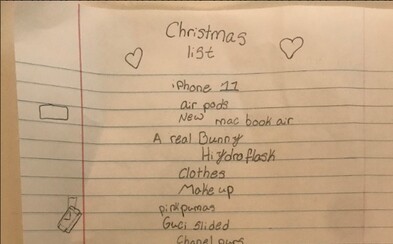 Christmas
list
iPhone 11
air pods
New mac book air
A real Bunny
Hydroflask
Clothes
Make up
pink pumas
Guci slided
Chanel purs